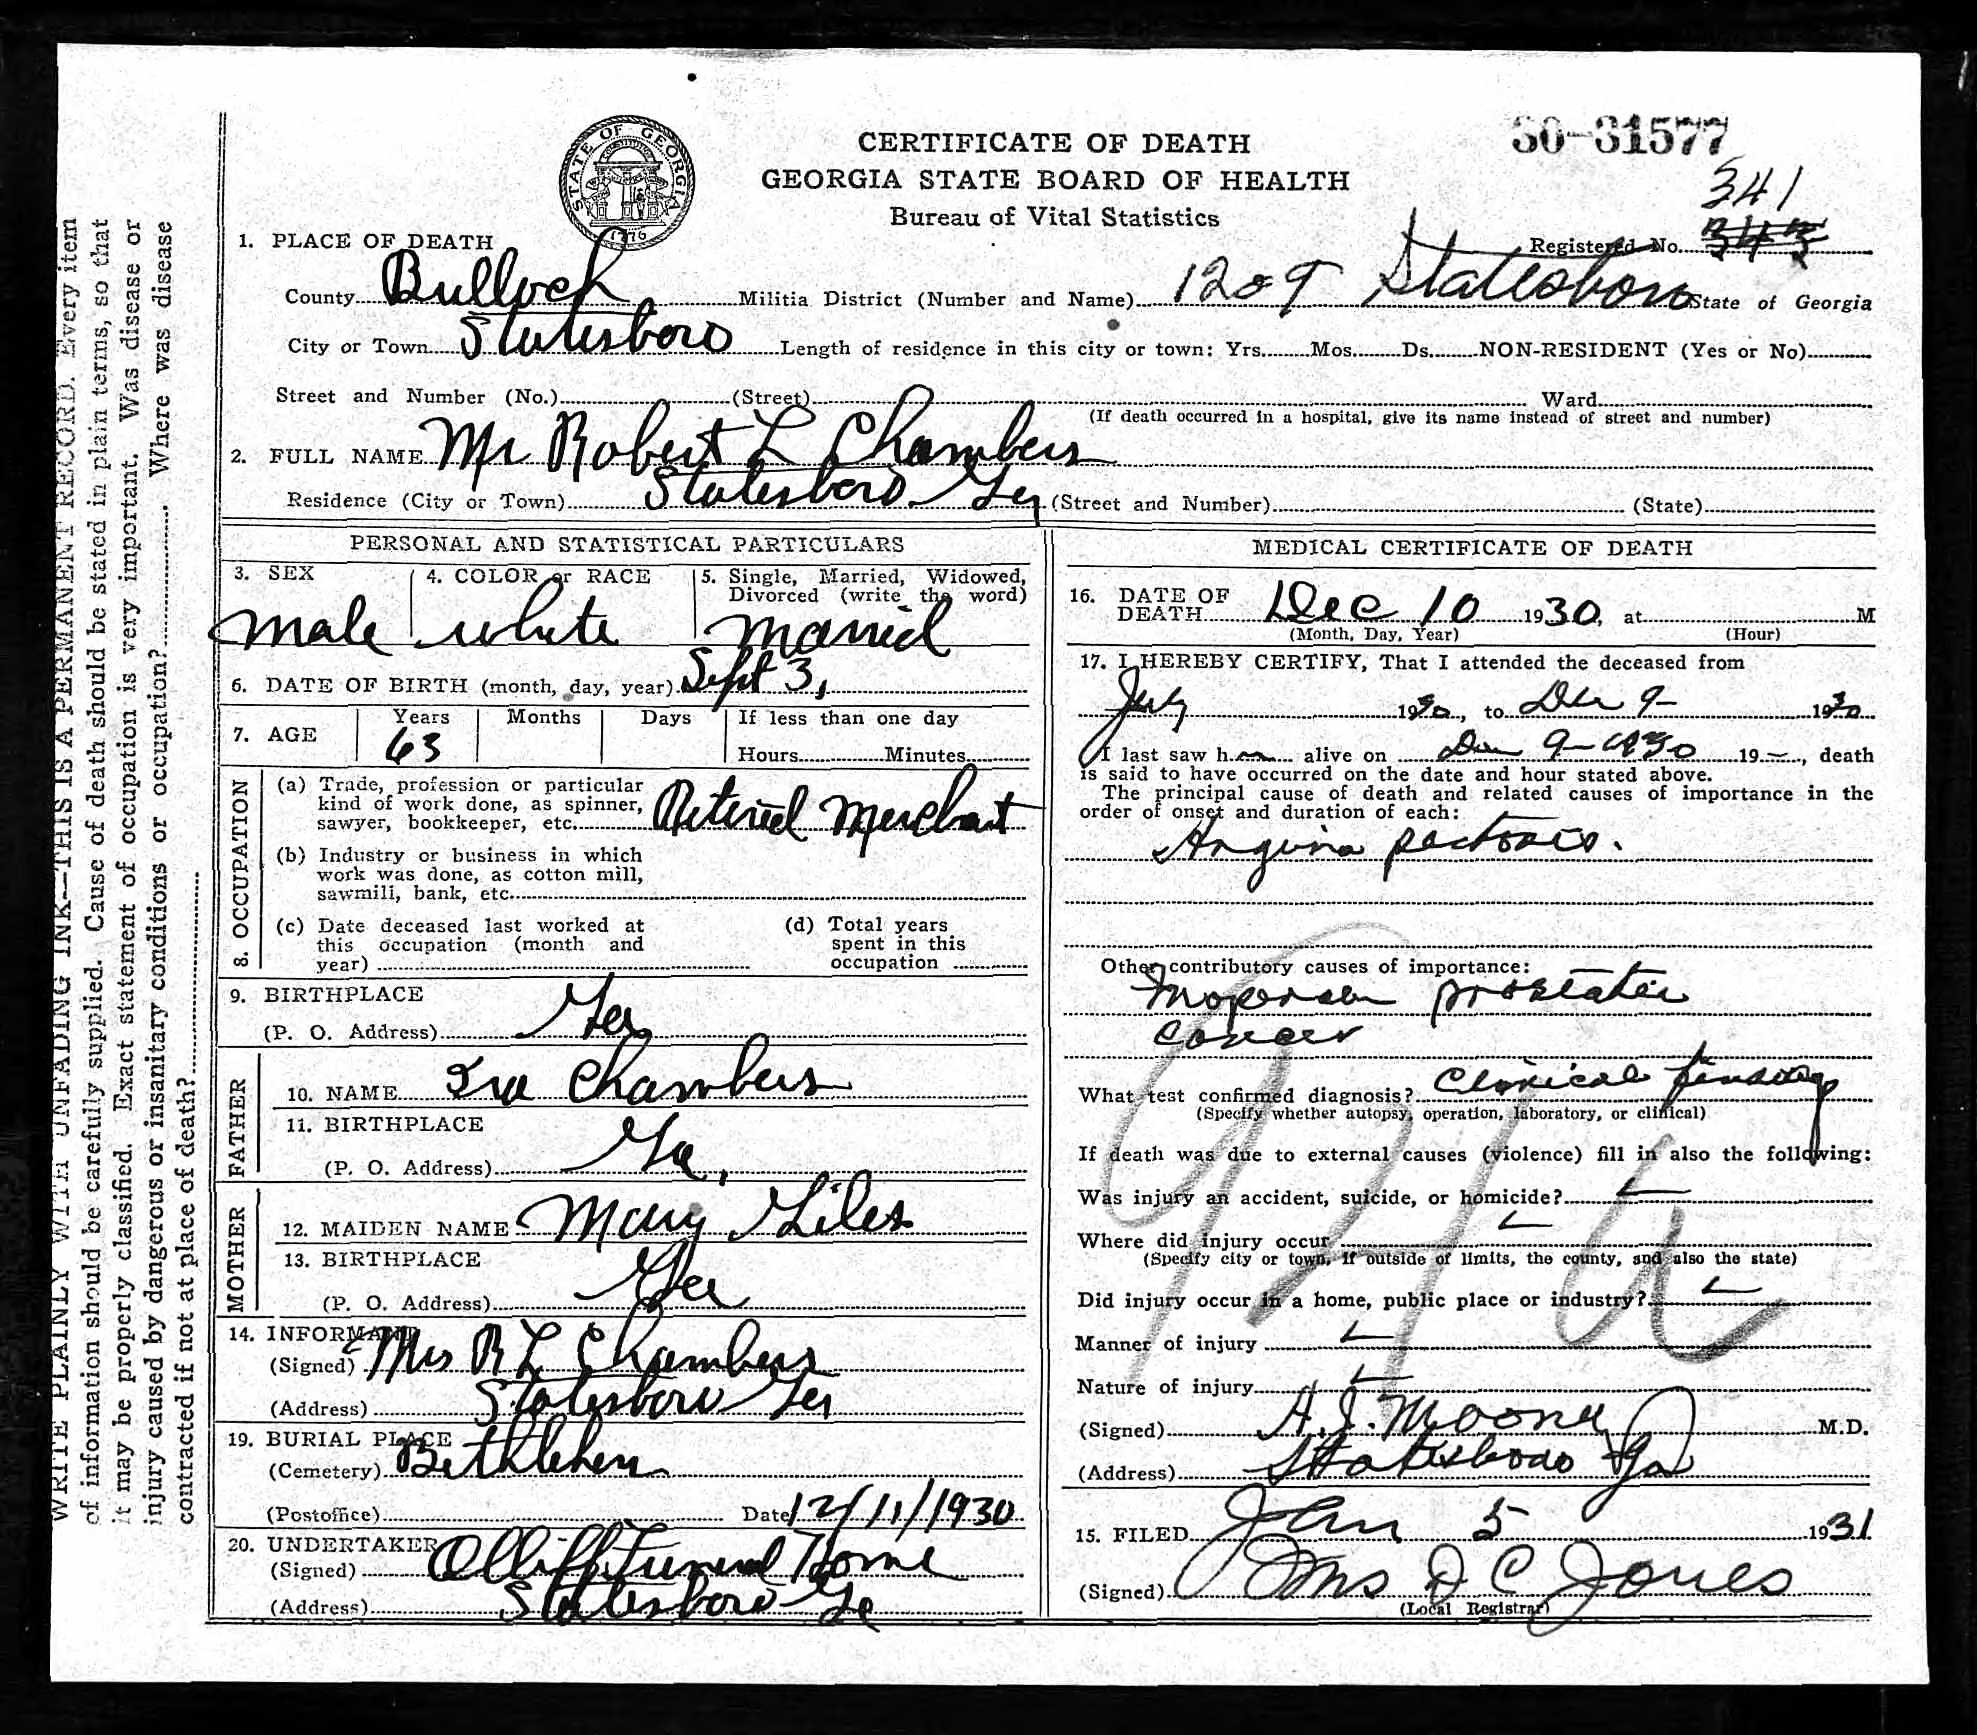 CERTIFICATE OF DEATH
GEORGIA STATE BOARD OF HEALTH
Bureau of Vital Statistics
STATE OF GEORGIA
CONSTITUTION
1776
30-31577
341
Registered No. 343
1. PLACE OF DEATH
County Bulloch Militia District (Number and Name) 1209 Statesboro State of Georgia
City or Town Statesboro Length of residence in this city or town: Yrs. Mos. Ds. NON-RESIDENT (Yes or No)
Street and Number (No.) (Street) Ward
(If death occurred in a hospital, give its name instead of street and number)
2. FULL NAME Mr Robert L Chambers
Residence (City or Town) Statesboro Ga (Street and Number) (State)
PERSONAL AND STATISTICAL PARTICULARS
3. SEX 4. COLOR or RACE 5. Single, Married, Widowed,
Divorced (write the word)
male white married
6. DATE OF BIRTH (month, day, year) Sept 3,
7. AGE Years Months Days If less than one day
63 Hours Minutes
8. OCCUPATION
(a) Trade, profession or particular
kind of work done, as spinner,
sawyer, bookkeeper, etc. Retired Merchant
(b) Industry or business in which
work was done, as cotton mill,
sawmill, bank, etc.
(c) Date deceased last worked at
this occupation (month and
year)
(d) Total years
spent in this
occupation
9. BIRTHPLACE
(P. O. Address) Ga
FATHER
10. NAME Ira Chambers
11. BIRTHPLACE
(P. O. Address) Ga.
MOTHER
12. MAIDEN NAME Mary Liles
13. BIRTHPLACE
(P. O. Address) Ga
14. INFORMANT
(Signed) Mrs R L Chambers
(Address) Statesboro Ga
19. BURIAL PLACE
(Cemetery) Bethlehem
(Postoffice) Date 12/11/1930
20. UNDERTAKER
(Signed) Olliff Funeral Home
(Address) Statesboro Ga
MEDICAL CERTIFICATE OF DEATH
16. DATE OF
DEATH Dec 10 1930, at M
(Month, Day, Year) (Hour)
17. I HEREBY CERTIFY, That I attended the deceased from
July 1930, to Dec 9- 1930
I last saw him alive on Dec 9-1930 19-, death
is said to have occurred on the date and hour stated above.
The principal cause of death and related causes of importance in the
order of onset and duration of each:
Angina pectoris.
Other contributory causes of importance:
Inoperable prostatic
cancer
What test confirmed diagnosis? Clinical findings
(Specify whether autopsy, operation, laboratory, or clinical)
If death was due to external causes (violence) fill in also the following:
Was injury an accident, suicide, or homicide?
Where did injury occur
(Specify city or town, if outside of limits, the county, and also the state)
Did injury occur in a home, public place or industry?
Manner of injury
Nature of injury
(Signed) A. J. Mooney M.D.
(Address) Statesboro Ga
15. FILED Jan 5 1931
(Signed) Mrs D C Jones
(Local Registrar)
WRITE PLAINLY WITH UNFADING INK—THIS IS A PERMANENT RECORD. Every item
of information should be carefully supplied. Cause of death should be stated in plain terms, so that
it may be properly classified. Exact statement of occupation is very important. Was disease or
injury caused by dangerous or insanitary conditions or occupation? Where was disease
contracted if not at place of death?